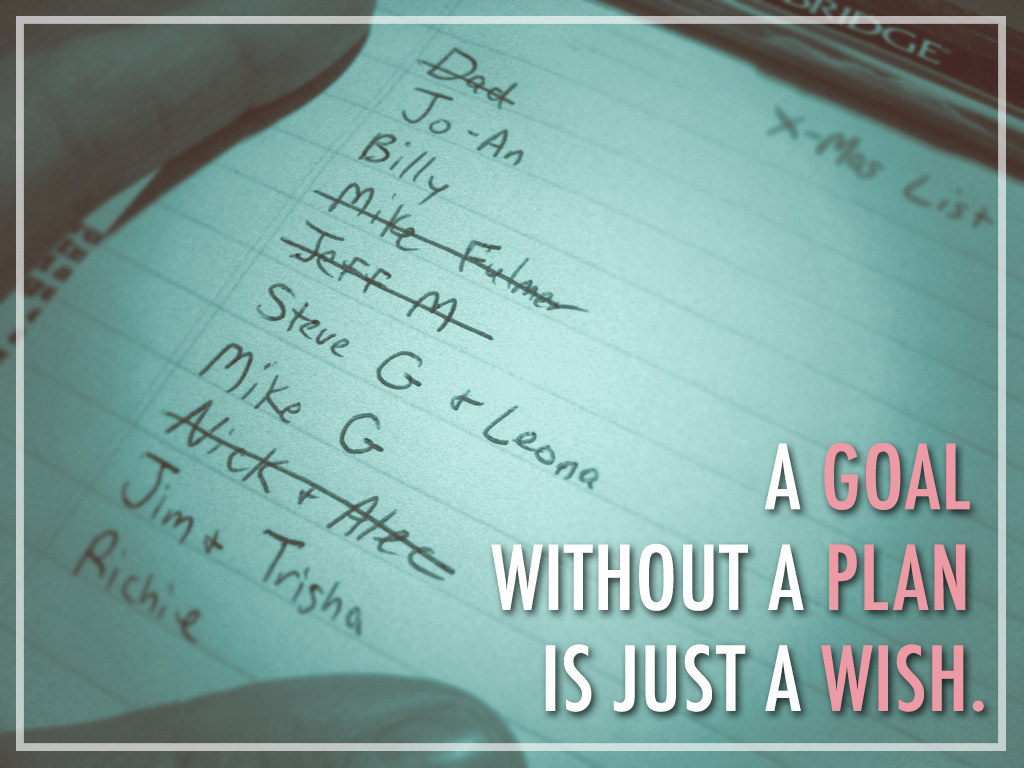 BRIDGE
X-Mas List
Dad
Jo-An
Billy
Mike Fulmer
Jeff M
Steve G + Leona
Mike G
Nick + Alec
Jim + Trisha
Richie
A GOAL
WITHOUT A PLAN
IS JUST A WISH.